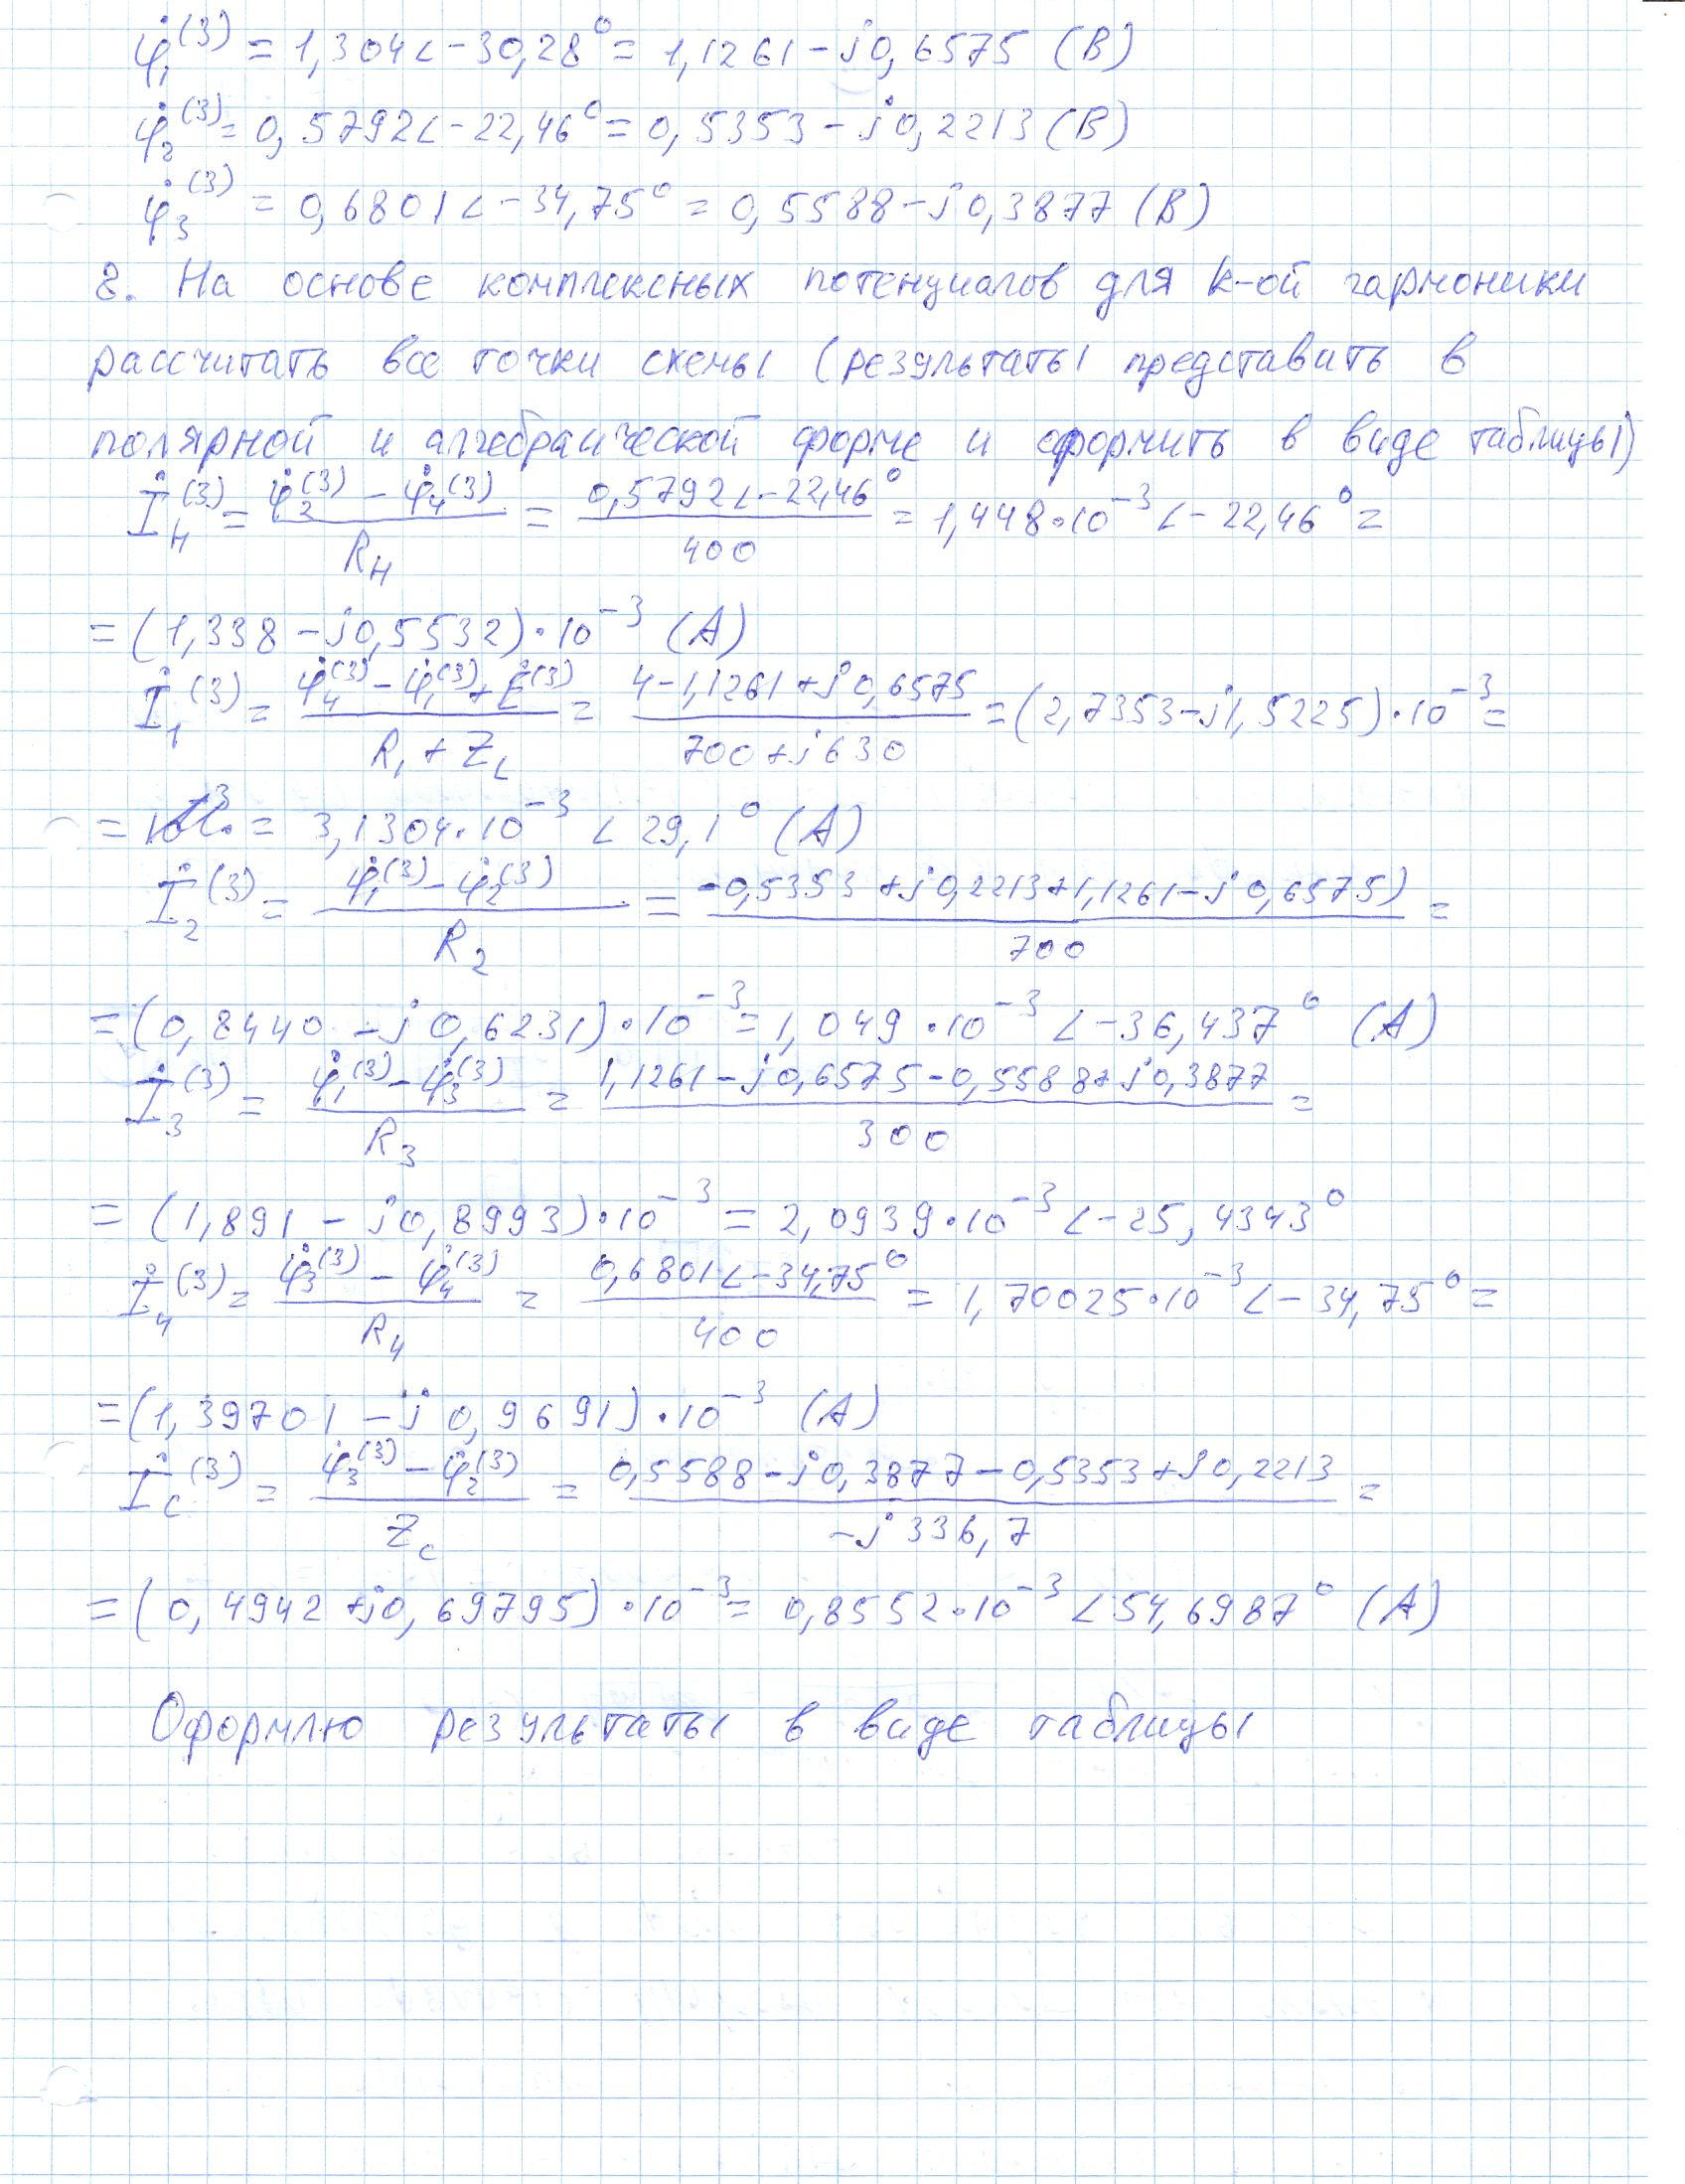 φ̇₁⁽³⁾ = 1,304∠-30,28° = 1,1261 - j0,6575 (В)
φ̇₂⁽³⁾ = 0,5792∠-22,46° = 0,5353 - j0,2213 (В)
φ̇₃⁽³⁾ = 0,6801∠-34,75° = 0,5588 - j0,3877 (В)
8. На основе комплексных потенциалов для k-ой гармоники
рассчитать все точки схемы (результаты представить в
полярной и алгебраической форме и оформить в виде таблицы)
İ_H⁽³⁾ = (φ̇₂⁽³⁾ - φ̇₄⁽³⁾) / R_H = 0,5792∠-22,46° / 400 = 1,448·10⁻³∠-22,46° =
= (1,338 - j0,5532)·10⁻³ (А)
İ₁⁽³⁾ = (φ̇₄⁽³⁾ - φ̇₁⁽³⁾ + Ė⁽³⁾) / (R₁ + Z_L) = (4 - 1,1261 + j0,6575) / (700 + j630) = (2,7353 - j1,5225)·10⁻³ =
= 3,1304·10⁻³∠29,1° (А)
İ₂⁽³⁾ = (φ̇₁⁽³⁾ - φ̇₂⁽³⁾) / R₂ = (-0,5353 + j0,2213 + 1,1261 - j0,6575) / 700 =
= (0,8440 - j0,6231)·10⁻³ = 1,049·10⁻³∠-36,437° (А)
İ₃⁽³⁾ = (φ̇₁⁽³⁾ - φ̇₃⁽³⁾) / R₃ = (1,1261 - j0,6575 - 0,5588 + j0,3877) / 300 =
= (1,891 - j0,8993)·10⁻³ = 2,0939·10⁻³∠-25,4343°
İ₄⁽³⁾ = (φ̇₃⁽³⁾ - φ̇₄⁽³⁾) / R₄ = 0,6801∠-34,75° / 400 = 1,70025·10⁻³∠-34,75° =
= (1,39701 - j0,9691)·10⁻³ (А)
İ_C⁽³⁾ = (φ̇₃⁽³⁾ - φ̇₂⁽³⁾) / Z_C = (0,5588 - j0,3877 - 0,5353 + j0,2213) / (-j336,7) =
= (0,4942 + j0,69795)·10⁻³ = 0,8552·10⁻³∠54,6987° (А)
Оформлю результаты в виде таблицы